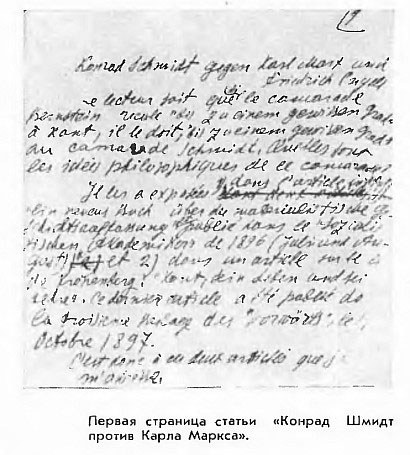 Konrad Schmidt gegen Karl Marx und
Friedrich Engels
e lecteur sait que le camarade
Bernstein recule zu einem gewissen Grade
à Kant, il le doit zu einem gewissen Grade
au camarade Schmidt. Quelles sont
les idées philosophiques de ce camarade
Il les a exposées dans l'article
ein neues Buch über die materialistische Ge-
schichtsauffassung publié dans le Soziali-
tischen Akademiker de 1896 (Juli und Au-
gust) et 2) dans un article sur le
Kronenberg: Kant, sein Leben und sei
Lehre. Ce dernier article a été publié dans
la troisième Beilage des "Vorwärts", le
Octobre 1897.
C'est donc à ces deux articles que je
m'adresse.
Первая страница статьи «Конрад Шмидт
против Карла Маркса».